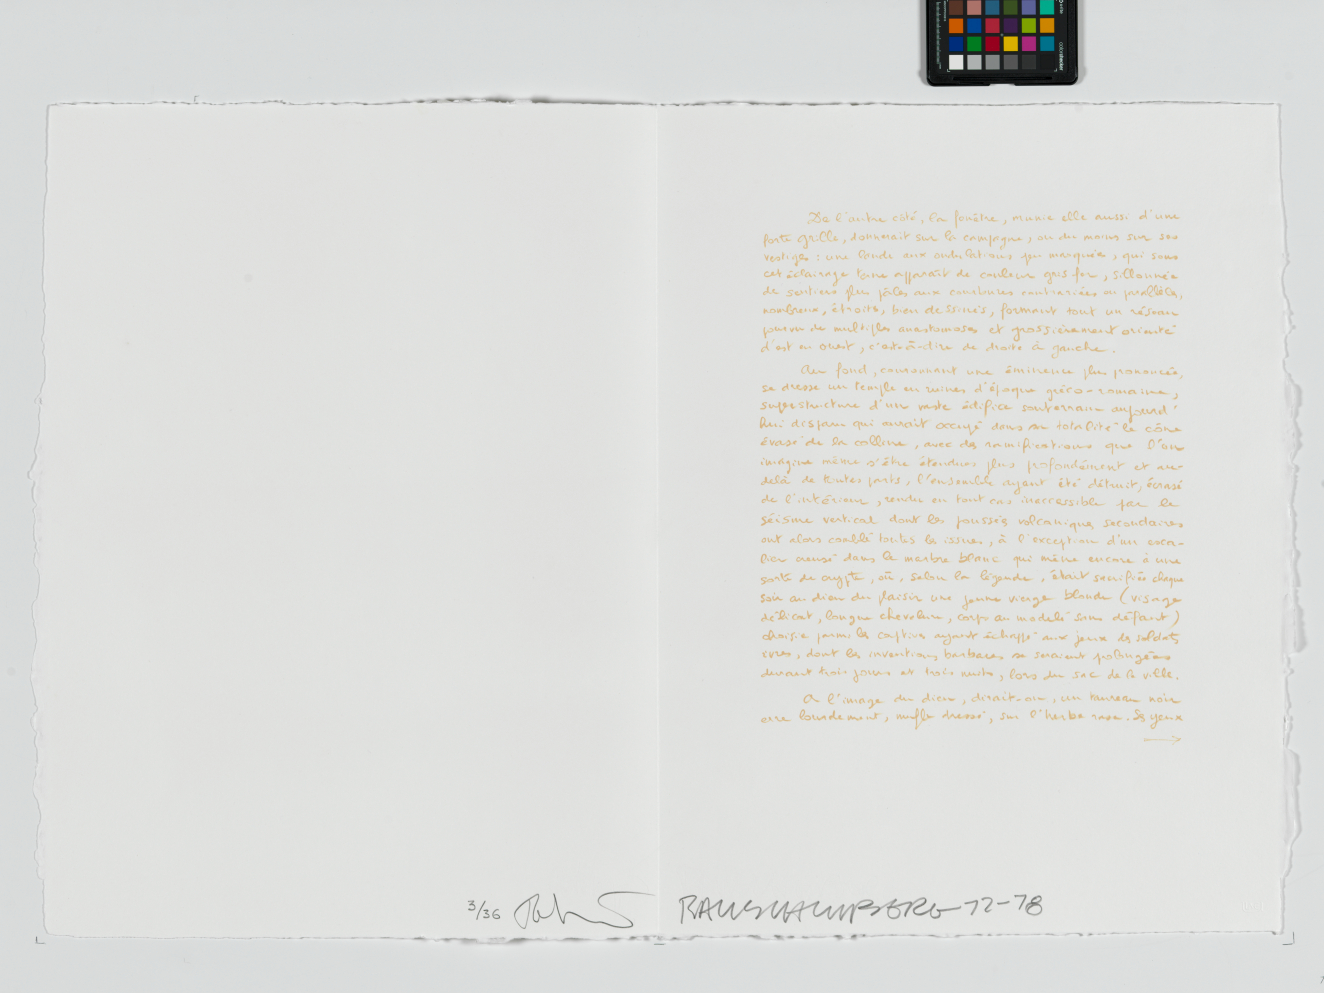 De l'autre côté, la fenêtre, munie elle aussi d'une
forte grille, donnerait sur la campagne, ou du moins sur ses
vestiges : une lande aux ondulations peu marquées, qui sous
cet éclairage lunaire apparaît de couleur gris fer, sillonnée
de sentiers plus pâles aux courbures contrariées ou parallèles,
nombreux, étroits, bien dessinés, formant tout un réseau
pourvu de multiples anastomoses et grossièrement orienté
d'est en ouest, c'est-à-dire de droite à gauche.
Au fond, couronnant une éminence plus prononcée,
se dresse un temple en ruines d'époque gréco-romaine,
superstructure d'un vaste édifice souterrain aujourd'
hui disparu qui aurait occupé dans sa totalité le cône
évasé de la colline, avec des ramifications que l'on
imagine même s'être étendues plus profondément et au-
delà de toutes parts, l'ensemble ayant été détruit, écrasé
de l'intérieur, rendu en tout cas inaccessible par le
séisme vertical dont les poussées volcaniques secondaires
ont alors comblé toutes les issues, à l'exception d'un esca-
lier creusé dans le marbre blanc qui mène encore à une
sorte de crypte, où, selon la légende, était sacrifiée chaque
soir au dieu du plaisir une jeune vierge blonde (visage
délicat, longue chevelure, corps au modelé sans défaut)
choisie parmi les captives ayant échappé aux jeux des soldats
ivres, dont les inventions barbares se seraient prolongées
durant trois jours et trois nuits, lors du sac de la ville.
A l'image du dieu, dirait-on, un taureau noir
erre lourdement, mufle dressé, sur l'herbe rase. Ses yeux
→
3/36 RAUSCHENBERG 72-78